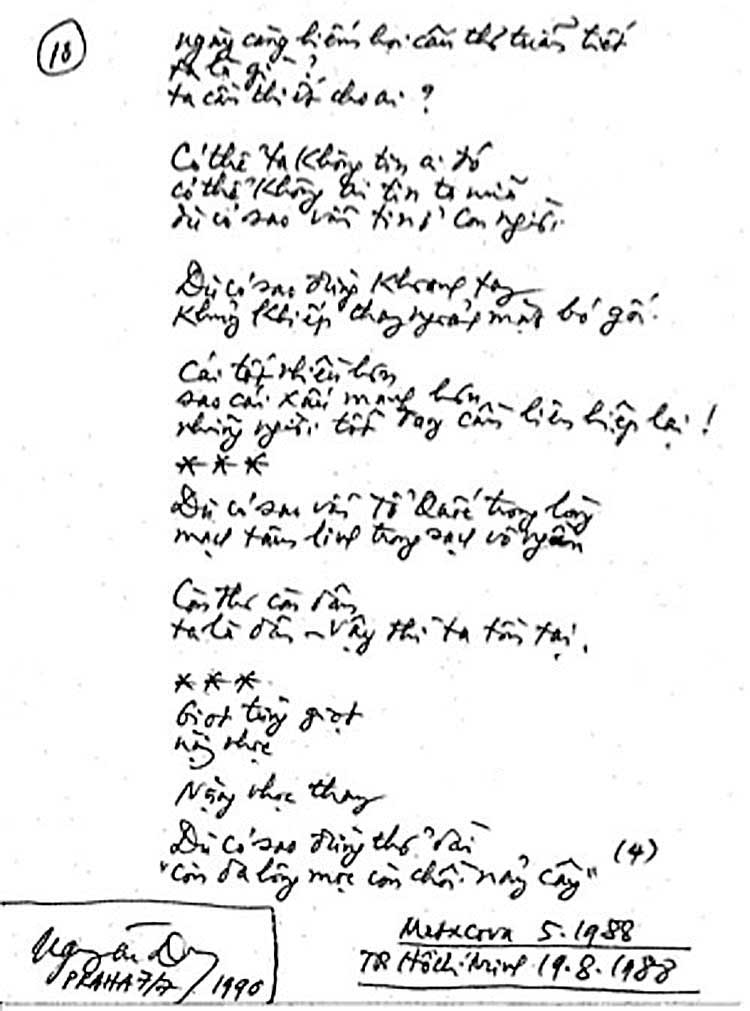 18
ngày càng hiếm hoi câu thơ tuẫn tiết
ta là gì ?
ta cần thiết cho ai ?
Có thể ta không tin ai đó
có thể không ai tin ta nữa
dù có sao vẫn tin ở con người.
Dù có sao đừng khoanh tay
khủng khiếp thay ngoảnh mặt bó gối.
Cái tốt nhiều hơn
sao cái xấu mạnh hơn
những người tốt cần liên hiệp lại !
***
Dù có sao vẫn Tổ Quốc trong lòng
mạch tâm linh trong sạch vô ngần
Còn thơ còn dân
ta là dân – vậy thì ta tồn tại.
***
Giọt từng giọt
nặng nhọc
Nặng nhọc thay
Dù có sao đừng thở dài
"còn da lông mọc còn chồi nảy cây" (4)
Matxcơva 5.1988
TP Hồ Chí Minh 19.8.1988
Nguyễn Duy
PRAHA 7/7/1990